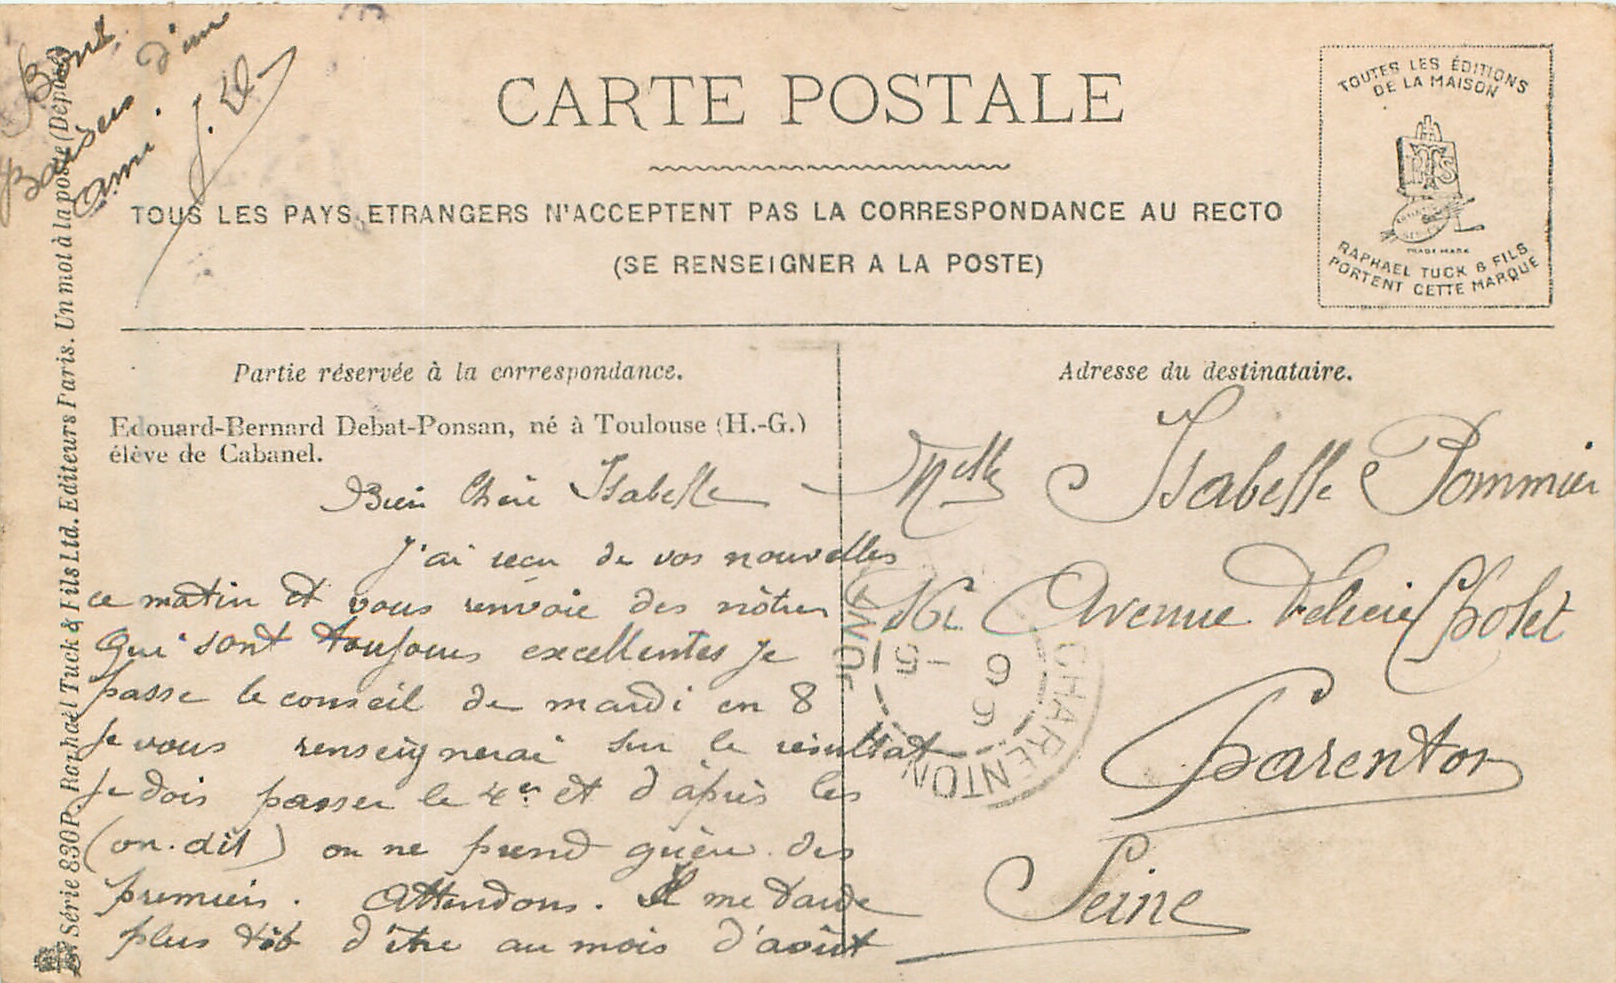 Bons
Baisers d'un
ami. J. D
CARTE POSTALE
TOUS LES PAYS ETRANGERS N'ACCEPTENT PAS LA CORRESPONDANCE AU RECTO
(SE RENSEIGNER A LA POSTE)
TOUTES LES ÉDITIONS
DE LA MAISON
TRADE MARK
RAPHAEL TUCK & FILS
PORTENT CETTE MARQUE
Série 830P. Raphaël Tuck & Fils Ltd. Editeurs Paris. Un mot à la poste (Déposé)
Partie réservée à la correspondance.
Edouard-Bernard Debat-Ponsan, né à Toulouse (H.-G.)
élève de Cabanel.
Bien Chère Isabelle
J'ai recu de vos nouvelles
ce matin et vous renvoie des nôtres
qui sont toujours excellentes je
passe le conseil de mardi en 8
je vous renseignerai sur le résultat
je dois passer le 4er et d'après les
(on-dit) on ne prend guère des
premiers. Attendons. Il me tarde
plus tôt d'être au mois d'août
Adresse du destinataire.
Melle Isabelle Pommier
Avenue Cholet
Charenton
Seine
CHARENTON